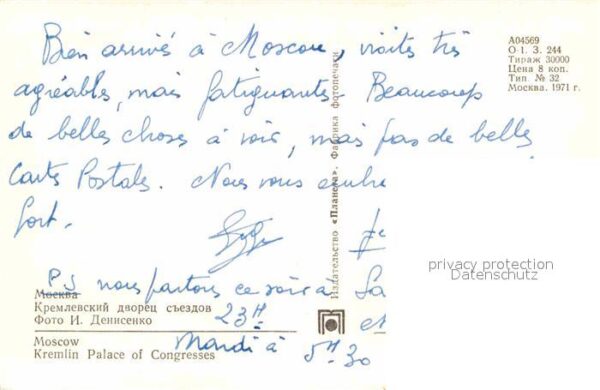 A04569
О I. З. 244
Тираж 30000
Цена 8 коп.
Тип. № 32
Москва. 1971 г.
Bien arrivés à Moscou, visites très
agréables, mais fatiguantes. Beaucoup
de belles choses à voir, mais pas de belles
Cartes Postales. Nous vous
fort.
PS nous partons ce soir à
23H
Mardi à 5H30
et
Издательство «Планета». Фабрика фотопечати
Москва
Кремлевский дворец съездов
Фото И. Денисенко
Moscow
Kremlin Palace of Congresses
privacy protection
Datenschutz